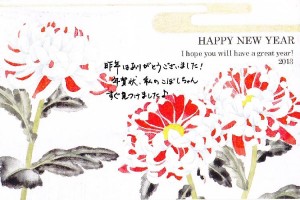 HAPPY NEW YEAR
I hope you will have a great year!
2013
昨年はありがとうございました!
年賀状、私のこぼしちゃん
すぐ見つけました♪